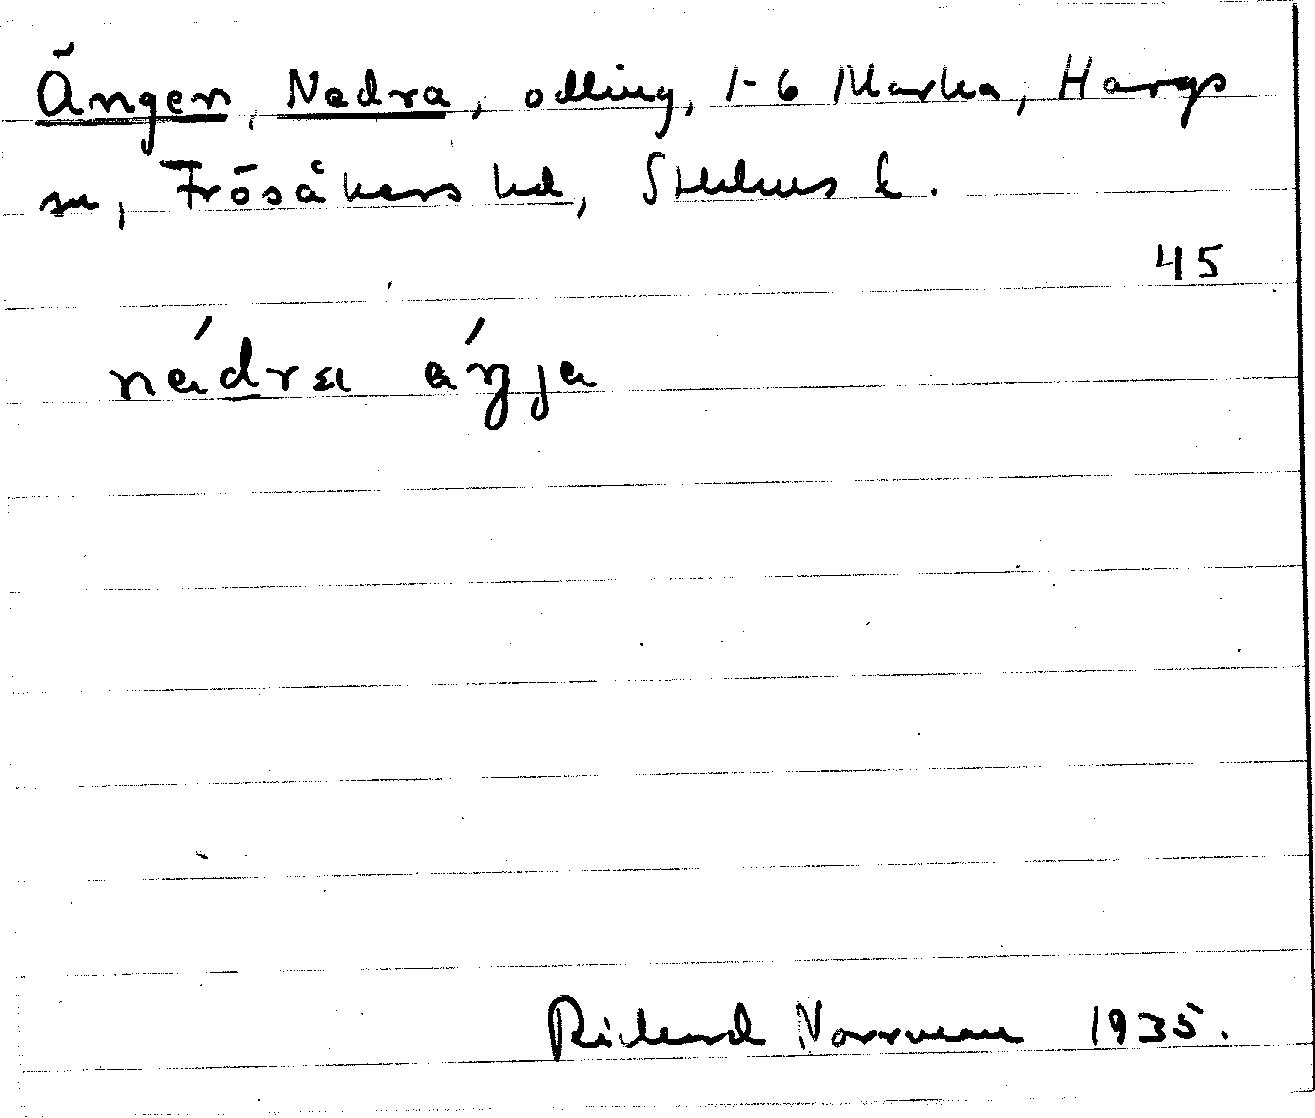 Ängen, Nedra, odling, 1-6 Marka, Hargs
sn, Frösåkers hd, Sthlms l.
45
nédra áŋja
Richard Norrman 1935.